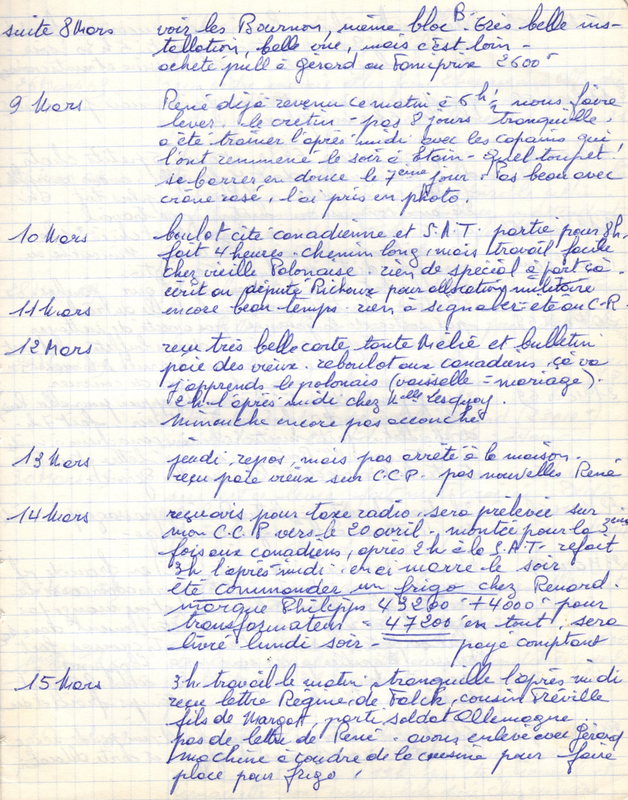 suite 8 Mars voir les Bournon, même bloc B. très belle ins-
tellation, belle vue, mais c'est loin -
acheté pull à Gérard au Familiprix 2600F
9 Mars René déjà revenu ce matin à 6h! nous faire
lever. le crétin - pas 8 jours tranquille,
a été traîner l'après midi avec les copains qui
l'ont remmené le soir à Etain - quel toupet!
se barrer en douce le 7ème jour. Pas beau avec
crâne rasé, l'ai pris en photo.
10 Mars boulot cité canadienne et S.A.T. partie pour 3h,
fait 4 heures. chemin long, mais travail facile
chez vieille Polonaise. rien de spécial à part çà
écrit au député pour allocation militaire
11 Mars encore beau temps. rien à signaler - été au C.P.
12 Mars reçu très belle carte tante Mélie et bulletin
paie des vieux. reboulot aux canadiens. çà va
j'apprends le polonais (vaisselle = mariage).
2h l'après midi chez Melle Lesquoy.
Mimauche encore pas accouché
13 Mars jeudi, repos, mais pas arrêté à la maison.
reçu paie vieux sur C.C.P. pas nouvelles René
14 Mars reçu avis pour taxe radio, sera prélevée sur
mon C.C.P. vers le 20 avril - montée pour la 3ème
fois aux canadiens, après 2h à la S.A.T. refait
3h l'après midi. en ai marre le soir
été commander un frigo chez Renard.
marque Philipps 43200F + 4000F pour
transformateur = 47200 en tout, sera
livré lundi soir - payé comptant
15 Mars 3h. travail le matin, tranquille l'après midi
reçu lettre Régine, de Falck, cousin Tréville
fils de Margot, parti soldat Allemagne
pas de lettre de René - avons enlevé avec Gérard
machine à coudre de la cuisine pour faire
place pour frigo!